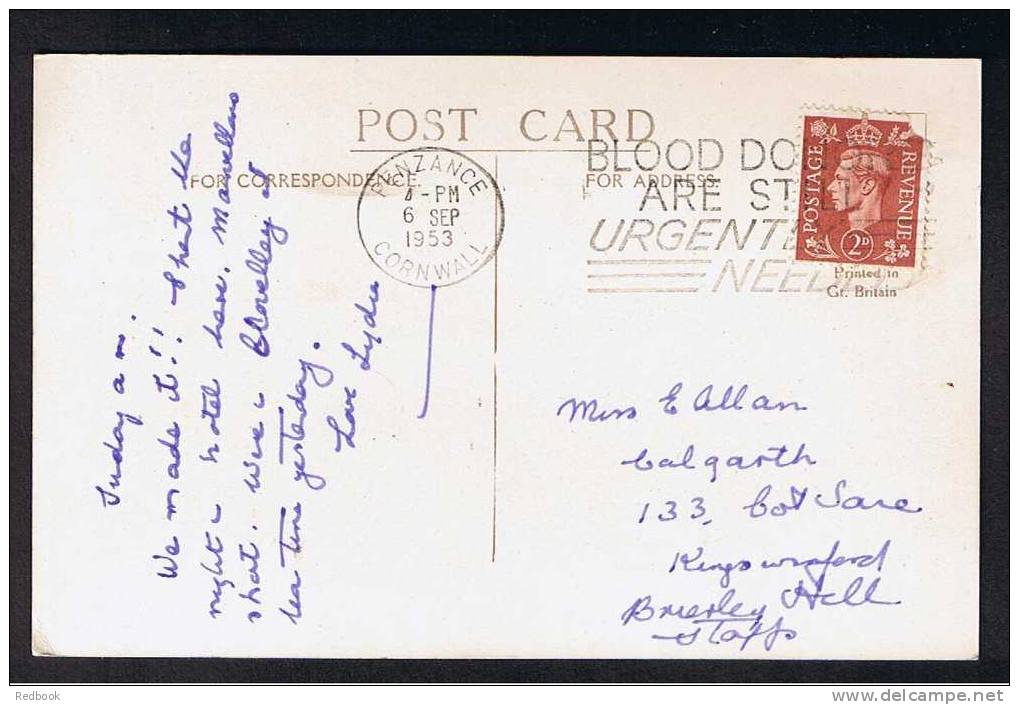 POST CARD
FOR CORRESPONDENCE.
FOR ADDRESS.
PENZANCE
4-PM
6 SEP
1953
CORNWALL
BLOOD DO
ARE STILL
URGENT
NEED
POSTAGE REVENUE
2D
Printed in
Gt. Britain
Sunday a m.
We made it!! Spent the
night in hotel here. Marvellous
spot. Were in Clovelly at
tea time yesterday.
Love Lydia
Miss E Allan
Calgarth
133, Cot Lane
Kingswinford
Brierley Hill
Staffs
Redbook
www.delcampe.net